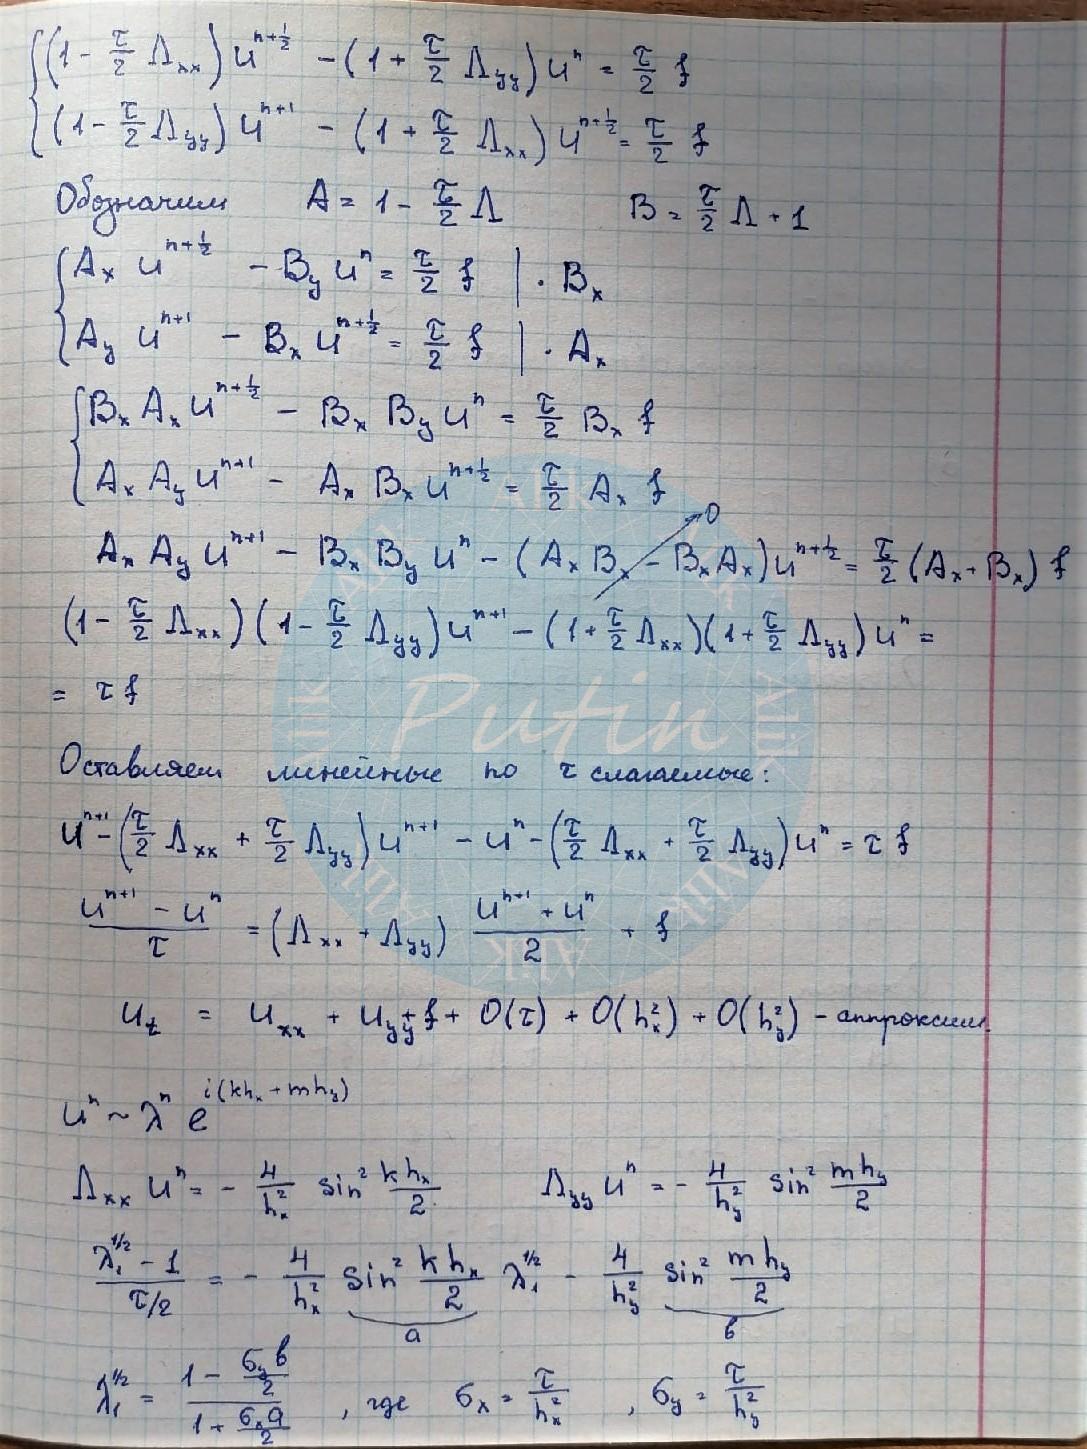 (1 - τ/2 Λxx) u^{n+1/2} - (1 + τ/2 Λyy) u^n = τ/2 f
(1 - τ/2 Λyy) u^{n+1} - (1 + τ/2 Λxx) u^{n+1/2} = τ/2 f
Обозначим A = 1 - τ/2 Λ B = τ/2 Λ + 1
Ax u^{n+1/2} - By u^n = τ/2 f | · Bx
Ay u^{n+1} - Bx u^{n+1/2} = τ/2 f | · Ax
Bx Ax u^{n+1/2} - Bx By u^n = τ/2 Bx f
Ax Ay u^{n+1} - Ax Bx u^{n+1/2} = τ/2 Ax f
Ax Ay u^{n+1} - Bx By u^n - (Ax Bx - Bx Ax) u^{n+1/2} = τ/2 (Ax + Bx) f
0
(1 - τ/2 Λxx)(1 - τ/2 Λyy) u^{n+1} - (1 + τ/2 Λxx)(1 + τ/2 Λyy) u^n =
= τ f
Putin
Оставляем линейные по τ слагаемые:
u^{n+1} - (τ/2 Λxx + τ/2 Λyy) u^{n+1} - u^n - (τ/2 Λxx + τ/2 Λyy) u^n = τ f
(u^{n+1} - u^n)/τ = (Λxx + Λyy) (u^{n+1} + u^n)/2 + f
ut = uxx + uyy + f + O(τ) + O(hx²) + O(hy²) - аппроксим.
u^n ~ λ^n e^{i(khx + mhy)}
Λxx u^n = - 4/hx² sin² khx/2 Λyy u^n = - 4/hy² sin² mhy/2
(λ1^{1/2} - 1)/(τ/2) = - 4/hx² sin² khx/2 λ1^{1/2} - 4/hy² sin² mhy/2
a в
λ1^{1/2} = (1 - бy в/2)/(1 + бx a/2) , где бx = τ/hx² , бy = τ/hy²